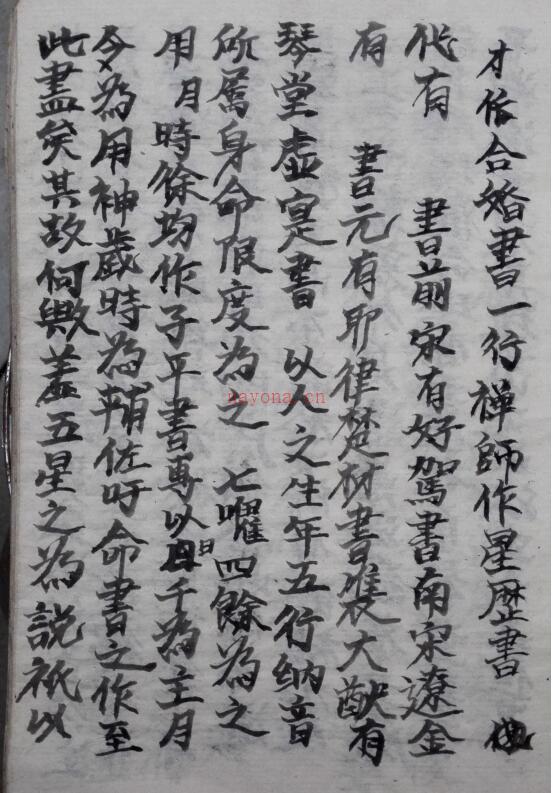 才俗合婚書一行禅師作星歷書
代有 書前宋有好駕書南宋遼金
有 書元有耶律楚材書袭大猷有
琴堂虛寔書 以人之生年五行纳音
所属身命限度為之 七曜四餘為之
用月時徐均作子平書專以日干為主月
令為用神歲時為輔佐吁命書之作至
此盡矣其故何歟羞五星之為説祇以
nayona.cn